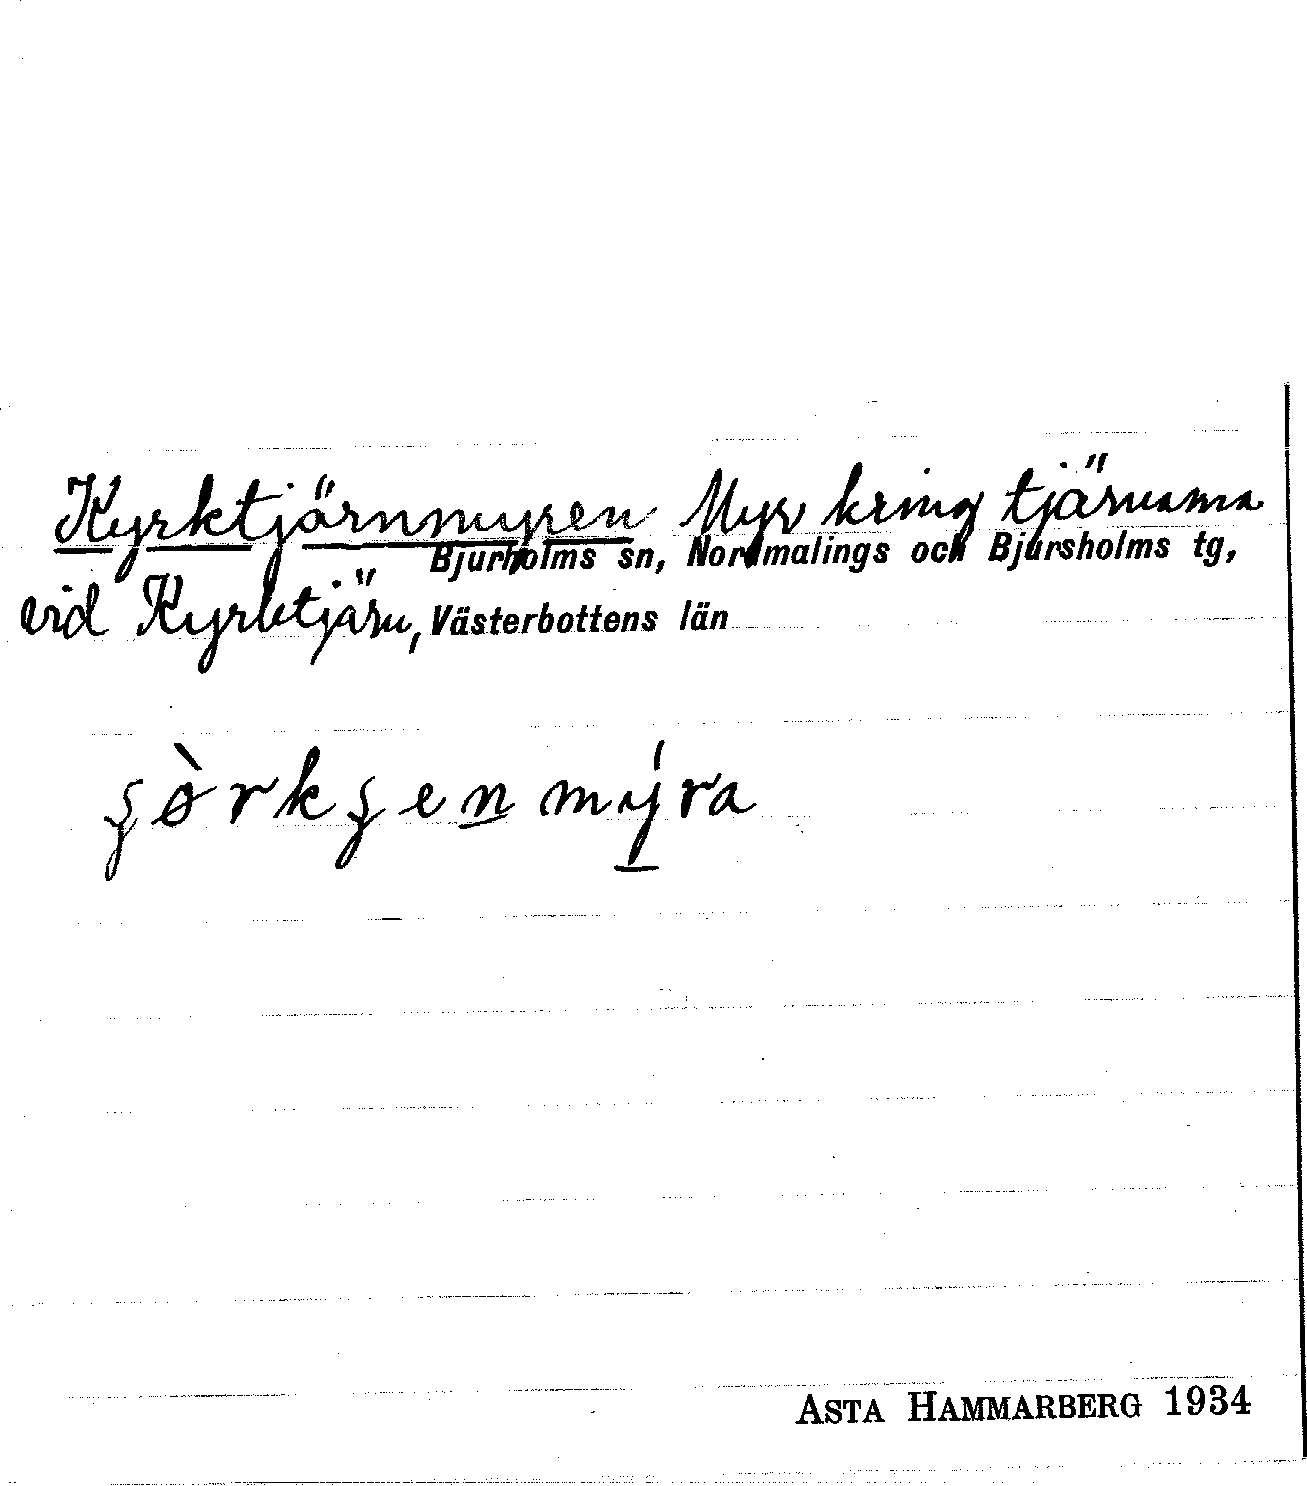 Kyrktjärnmyren Myr kring tjärnarna
Bjurholms sn, Nordmalings och Bjursholms tg,
vid Kyrktjärn, Västerbottens län
ʂørkʂen myra
ASTA HAMMARBERG 1934